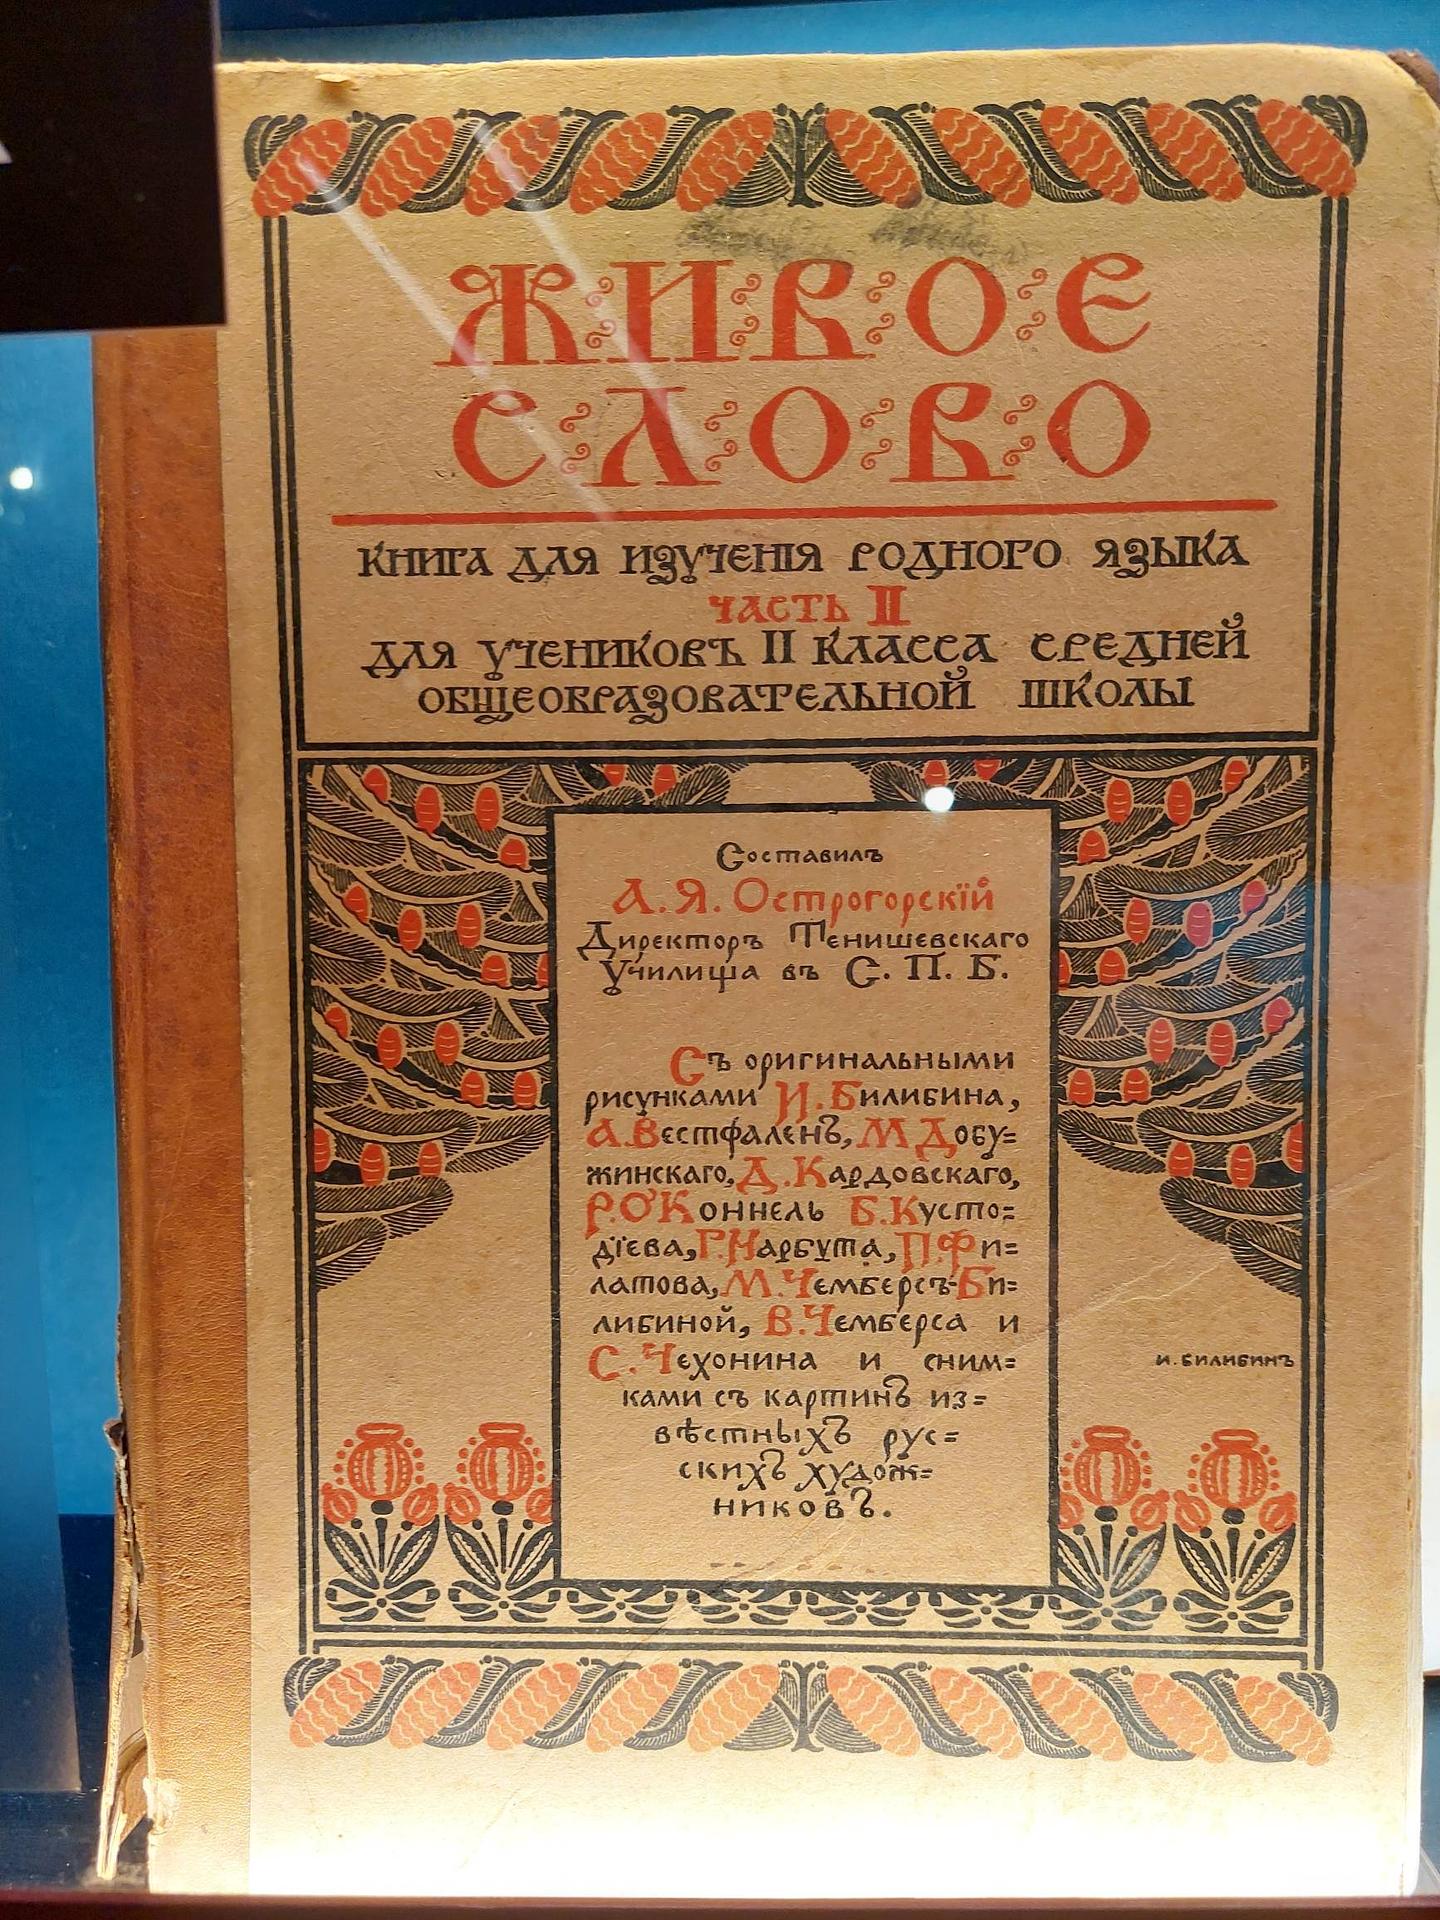 ЖИВОЕ
СЛОВО
КНИГА ДЛЯ ИЗУЧЕНІЯ РОДНОГО ЯЗЫКА
ЧАСТЬ II
ДЛЯ УЧЕНИКОВЪ II КЛАССА СРЕДНЕЙ
ОБЩЕОБРАЗОВАТЕЛЬНОЙ ШКОЛЫ
Составилъ
А. Я. Острогорскій
Директоръ Тенишевскаго
Училища въ С. П. Б.
Съ оригинальными
рисунками И. Билибина,
А. Вестфаленъ, М Добу=
жинскаго, Д. Кардовскаго,
Р. О'Коннель Б. Кусто=
діева, Г. Нарбута, П. Фи=
латова, М. Чемберсъ-Би=
либиной, В. Чемберса и
С. Чехонина и сним=
ками съ картинъ из=
вѣстныхъ рус=
скихъ худож=
никовъ.
И. БИЛИБИНЪ